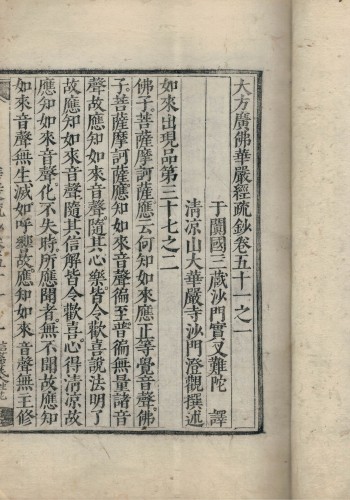 大方廣佛華嚴經疏鈔卷五十一之一
于闐國三藏沙門實叉難陀 譯
清凉山大華嚴寺沙門澄觀撰述
如來出現品第三十七之二
佛子菩薩摩訶薩應云何知如來應正等覺音聲佛
子菩薩摩訶薩應知如來音聲徧至普徧無量諸音
聲故應知如來音聲隨其心樂皆令歡喜說法明了
故應知如來音聲隨其信解皆令歡喜心得清凉故
應知如來音聲化不失時所應聞者無不聞故應知
如來音聲無生滅如呼響故應知如來音聲無主修